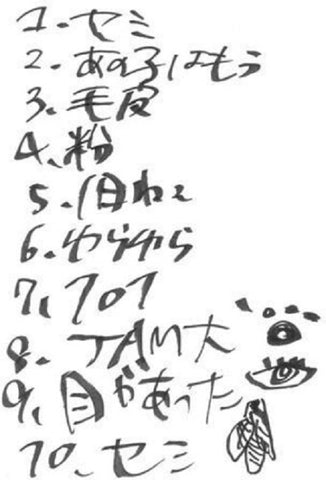 1、セミ
2、あの子はもう
3、毛皮
4、粉
5、
6、ゆらゆら
7、
8、JAM大
9、目があった
10、セミ